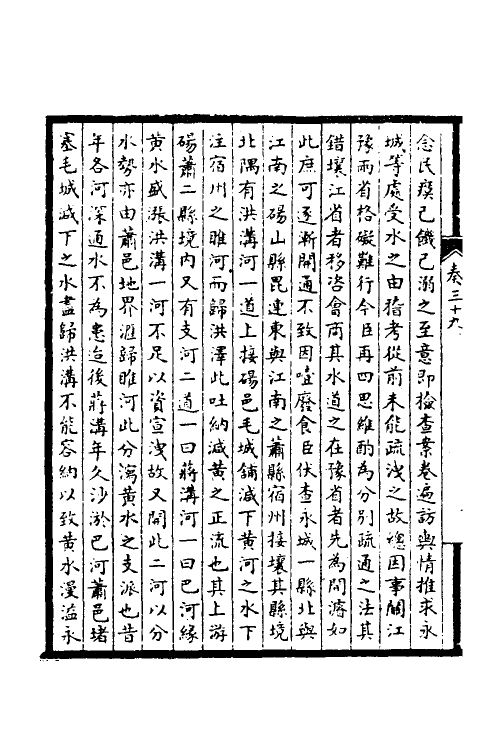 念民瘼己饑己溺之至意即檢查案卷遍訪輿情推求永
城等處受水之由稽考從前未能疏洩之故總因事關江
豫兩省格礙難行今臣再四思維酌為分別疏通之法其
錯壤江省者移咨會商其水道之在豫省者先為開濬如
此庶可逐漸開通不致因噎廢食臣伏查永城一縣北與
江南之碭山縣毘連東與江南之蕭縣宿州接壤其縣境
北隅有洪溝河一道上接碭邑毛城舖減下黃河之水下
注宿州之睢河而歸洪澤此吐納減黃之正流也其上游
碭蕭二縣境內又有支河二道一曰蔣溝河一曰巴河緣
黃水盛漲洪溝一河不足以資宣洩故又開此二河以分
水勢亦由蕭邑地界滙歸睢河此分瀉黃水之支派也昔
年各河深通水不為患迨後蔣溝年久沙淤巴河蕭邑堵
塞毛城減下之水盡歸洪溝不能容納以致黃水漫溢永
奏三十九